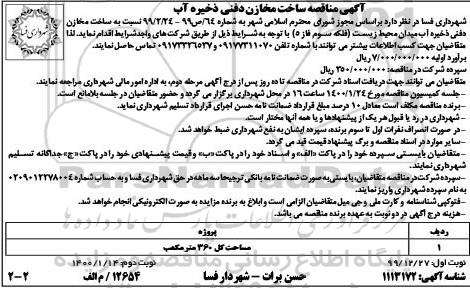 آگهی مناقصه ساخت مخازن دفنی ذخیره آب
شهرداری فسا در نظر دارد براساس مجوز شورای محترم اسلامی شهر به شماره ٦٤/ص/٩٩ - ٩٩/٢/٢٤ نسبت به ساخت مخازن
دفنی ذخیره آب میدان محیط زیست (فلکه سوم فاز ٥) با توجه به شرایط ذیل از طریق شرکت های واجدشرایط اقدام نماید. لذا
متقاضیان جهت کسب اطلاعات بیشتر می توانند با شماره تلفن ٠٩١٧٧٣١١٠٧٠ و ٠٩١٧٣٣٢٦٥٣٧ تماس حاصل نمایند.
برآورد اولیه ٧/٠٠٠/٠٠٠/٠٠٠ ریال
سپرده شرکت در مناقصه: ٣٥٠/٠٠٠/٠٠٠ ریال
- متقاضیان می توانند جهت دریافت اسناد شرکت در مناقصه تا ده روز پس از درج آگهی مرحله دوم، به اداره امور مالی شهرداری مراجعه نمایند.
- جلسه کمیسیون مناقصه مورخ ١٤٠٠/١/٢٤ ساعت ١٦ در محل شهرداری برگزار می گردد و حضور متقاضیان در جلسه بلامانع است.
- برنده مناقصه مکلف است معادل ١٠ درصد مبلغ قرارداد ضمانت نامه حسن اجرای قرارداد تسلیم شهرداری نماید.
- شهرداری در رد یا قبول هر یک از پیشنهادها و یا همه آنها مختار است.
- در صورت انصراف نفرات اول تا سوم برنده، سپرده ایشان به نفع شهرداری ضبط خواهد شد.
- سایر موارد در اسناد مناقصه و برگ پیشنهاد قیمت قید می گردد.
- متقاضیان بایستی سپرده خود را در پاکت «الف» و اسناد خود را در پاکت «ب» و قیمت پیشنهادی خود را در پاکت «ج» جداگانه تسلیم
شهرداری نمایند.
- سپرده شرکت در مناقصه متقاضیان، بایستی به صورت ضمانت نامه بانکی ترجیحا سه ماهه در حق شهرداری فسا و به حساب شماره ٠٢٠٩٠١٢٢٧٨٠٠٤
به نام سپرده شهرداری واریز نمایند.
- فتوکپی شناسنامه و کارت ملی و جی میل متقاضیان الزامی است و ابلاغ به برنده مزایده به صورت الکترونیکی انجام خواهد شد.
- هزینه درج آگهی در دو نوبت به عهده برنده مناقصه می باشد.
ردیف
١ مساحت کل ٣٦٠ مترمکعب
نوبت اول: ٩٩/١٢/٢٧ نوبت دوم: ١٤٠٠/١/١٤
شناسه آگهی: ١١١٣١٧٢ حسن برات - شهردار فسا ١٢٦٥٤/م الف ٢-٢